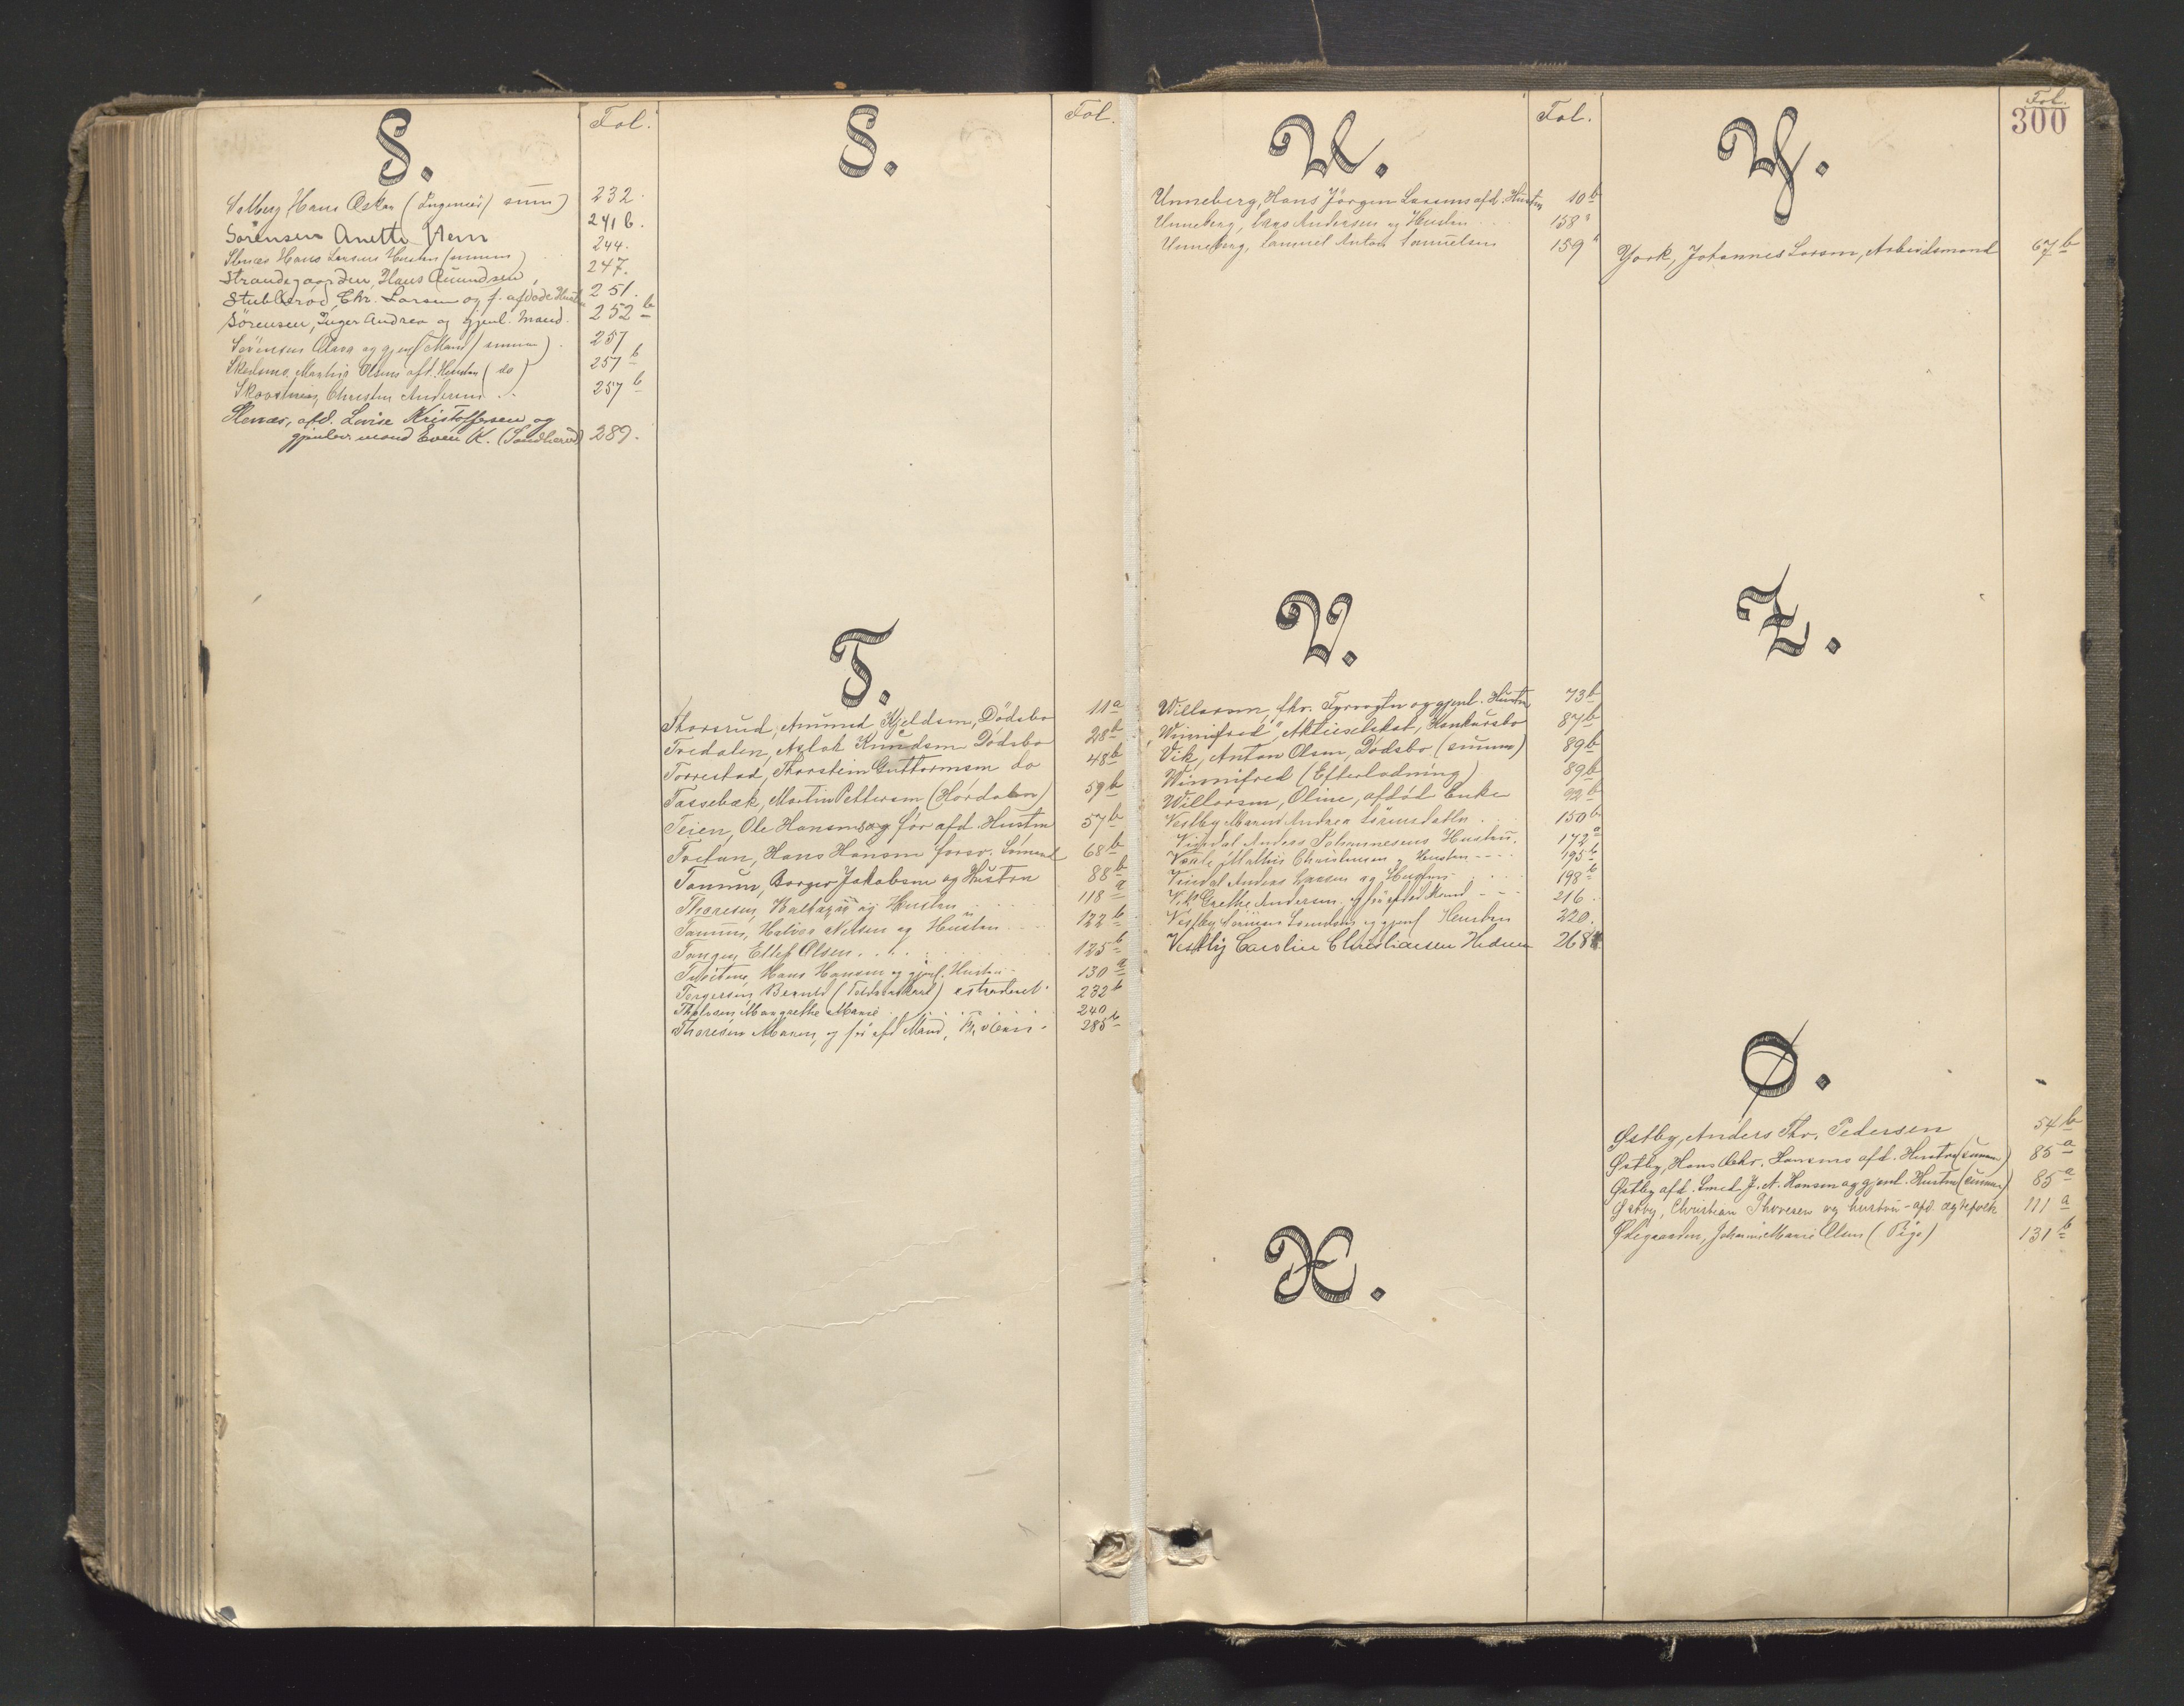 S. Fol.
Solberg, Hans Oskar (Ingeniør/ summ) 232.
Sørensen Anette Nern 241 b.
Slenæs Hans Larsens Hustru (summ) 244.
Strandegaarden, Hans Amundsen 247.
Stubberød, Chr. Larsen og f. afdøde Hustru 251.
Sørensen, Inger Andrea og gjenl. Mand. 252 b
Sørensen Olava og gjenl Mand / summ) 257
Skedsmo, Mathis Olsens afd. Hustru (do) 257 b
Christen Andersen 257 b
Slenæs, afd. Lovise Kristoffersen og
gjenlev. mand Even K. (Sandherred) 289.
S. Fol.
T.
Thorsrud, Amund Kjeldsen, Dødsbo 11 a
Tredalen, Aslak Knudsen Dødsbo 28 b
Torrestad, Thorstein Guttormsen do 48 b
Tassebæk, Martin Pettersen (Hordalen) 59 b
Teien, Ole Hansen og før afd. Hustru 57 b
Tvetan, Hans Hansen forsv. Sømand 68 b
Tanum, Borger Jakobsen og Hustru 88 b
Thoresen, Baltazar og Hustru 118 a
Tanum, Halvor Nilsen og Hustru 122 b
Tangen, Ellef Olsen 125 b
Tveitene, Hans Hansen og gjenl. Hustru 130 a
Torgersen, Bernt ( ) extraderet 232 b
Margrethe Marie 240
Thoresen Maren, og før afd Mand, 285 b
U. Fol.
Unneberg, Hans Jørgen Larsens afd. Hustru 10 b
Unneberg, Lars Andersen og Hustru 158
Unneberg, Samuel Anton Samuelsen 159
V.
Willarsen, fhv. Fyrvogter og gjenl. Hustru 73 b
"Winnifred", Aktieselskab, Konkursbo 87 b
Vik, Anton Olsen, Dødsbo (summ) 89 b
Winnifred (Efterlodning) 89 b
Willarsen, Oline, afdød Enke 92 b
Vestby Maren Andrea Sørensdatter 150 b
Vindal Anders Johannesens Hustru. 172 a
Mathis Christensen og Hustru 195 b
Vindal Anders Larsen og Hustru 198 b
Vik Grethe Andersen og før afdød Mand 216.
Vestby Søren og gjenl Hustru 220.
Vestby Caroline Christiansen Hedrum 268
X.
Y. Fol.
300
York, Johannes Larsen, Arbeidsmand 67 b
Z.
Ø.
Østby, Anders Thr. Pedersen 54 b
Østby, Hans Chr. Hansens afd. Hustru (summ) 85 a
Østby afd. Smed J. A. Hansen og gjenl. Hustru (summ) 85 a
Østby, Christian Thoresen og hustru - afd. ægtefolk 111 a
Ødegaarden, Johanne Marie Olsen (Pige) 131 b